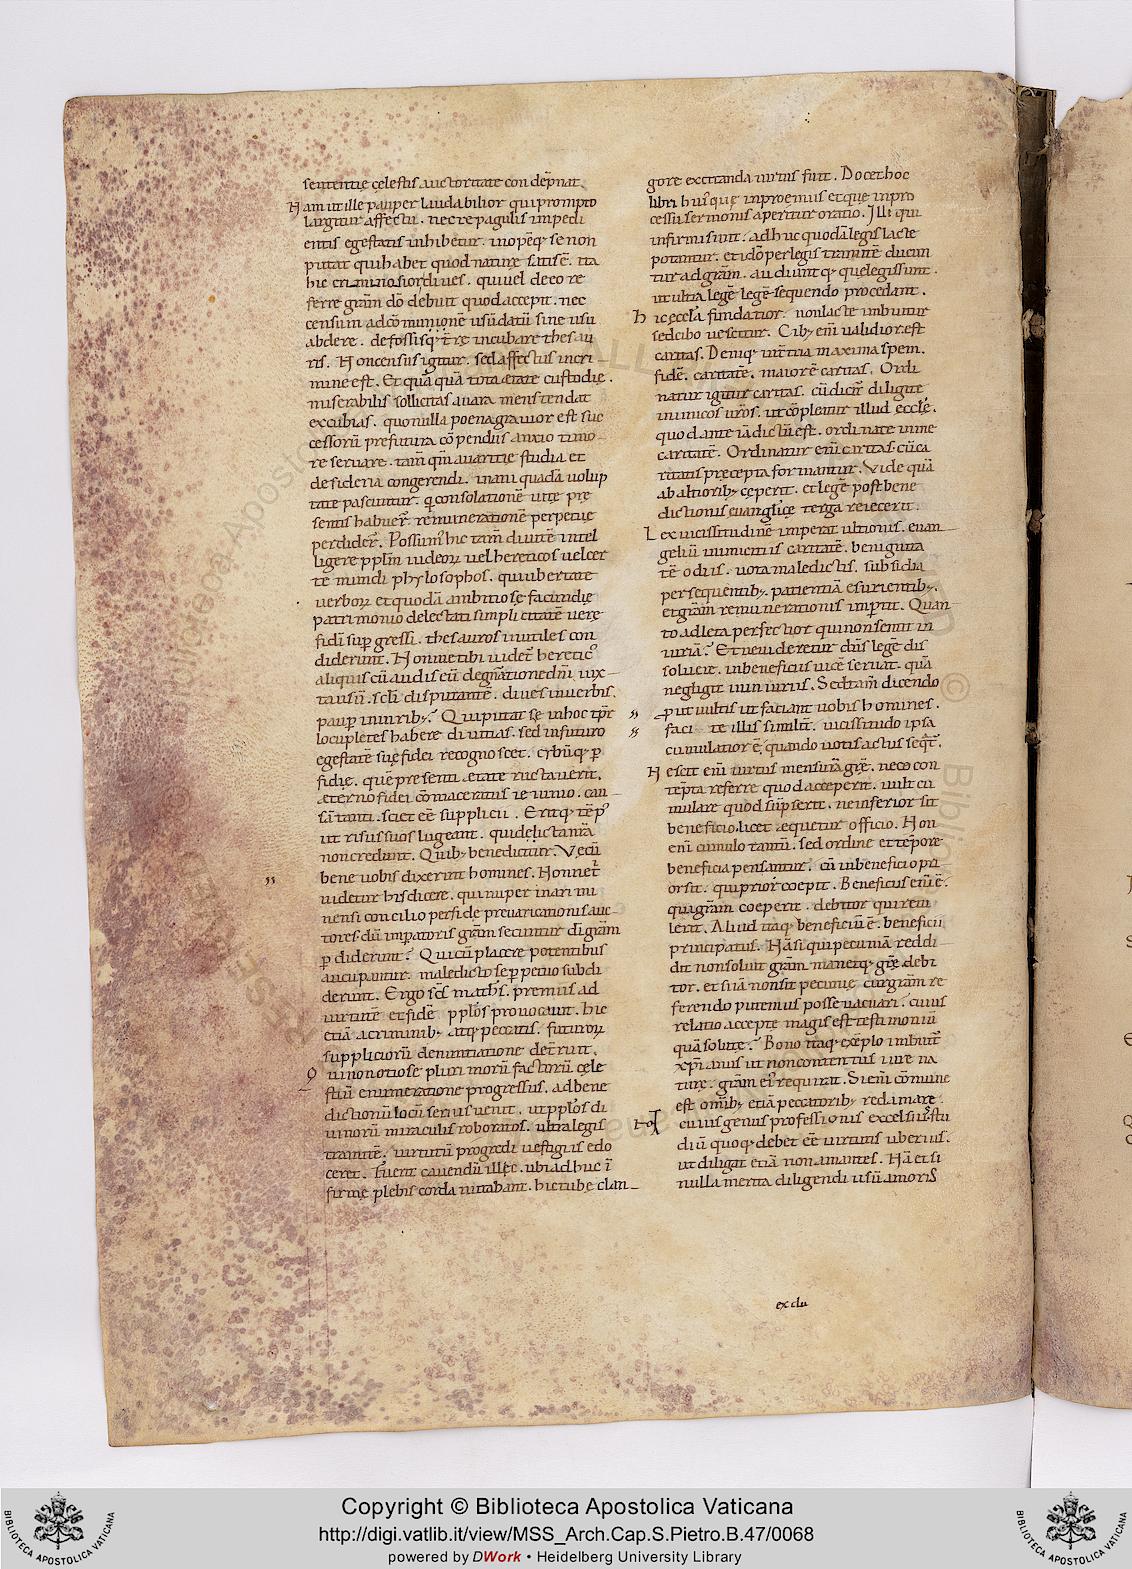 sententię cęlestis auctoritate condēpnat.
Nam ut ille pauper laudabilior qui prompto
largitur affectu. nec repagulis impedi
entis egestatis inhibetur. inopēq; se non
putat qui habet quod naturę satis ē. ita
hic criminosior diues. qui uel de eo re
ferre grām dō debuit quod accepit. nec
censum ad cōmunionē usū datū sine usu
abdere. defossisq; t̄rę incubare thesau
ris. Non census igitur. sed affectus incri
mine est. Et quāquā tota ętate custodię.
miserabilis sollicitas auara mens tendat
excubias. quo nulla poena grauior est suc
cessorū prefutura cōpendiis anxio timo
re seruare. tam̄ qm̄ auaritię studia et
desideria congerendi. inani quadā uolup
tate pascuntur. q̄ consolationē uitę prę
sentis habuer̄. remunerationē perpetuę
perdider̄. Possum' hic tam̄ diuitē intel
ligere pplm̄ iudeoꝝ uel hereticos uel cer
te mundi phylosophos. qui ubertate
uerboꝝ et quodā ambitiosę facundię
patrimonio delectati simplicitatē uerę
fidei sup̄gressi. thesauros inutiles con
diderunt. Nonne tibi uidet̄ heretic'
aliquis cū audis eū degn̄atione dn̄i iux
ta usū. scl̄i disputantē. diues in uerbis.
paup̄ in uirib;? Qui putat se in hoc tp̄r
locupletes habere diuitias. sed in futuro
egestatē suę fidei recognoscet. cybūq; p̄
fidię. quē presenti ętate ructauerit.
ęterno fidei cōmaceratus ieiunio. cau
sā tanti. sciet eē supplicii. Eritq; tēp'
ut risus suos lugeant. qui dęlictariā
non credunt. Quib; benedicitur. Vę cū
bene uobis dixerint homines. Nonne t̄
uidetur his dicere. qui nuper in arimi
nensi concilio perfidę preuaricationis auc
tores. dū imp̄atoris grām secuntur. dī grām
p̄diderunt? Qui cū placere potentibus
aucupantur. maledicto se p̄petuo subdi
derunt. Ergo sc̄s maths̄. premiis ad
uirtutē et fidē pplōs prouocauit. hic
etiā a criminib; atq; peccatis. futuroꝝ
suppliciorū denuntiatione det̄ruit.
Qui non otiose plurimorū factorū cęle
stiū enumeratione progressus. ad bene
dictionū locū serius uenit. ut pplōs di
uinorū miraculis roboratos. ultra legis
tramitē. uirtutū progredi uestigiis edo
ceret. Fuerit cauendū illęc. ubi adhuc ī
firmę plebis corda nutabant. hic tubę clan
gore excitanda uirtus fuit. Docet hoc
libri huiusque in proemiis et que in pro
cessu sermonis aperitur oratio. Illi qui
infirmi sunt. adhuc quodā legis lacte
potantur. et idō per legis tramitē ducun
tur ad grām. audiunt q; que legis sunt.
ut ultra legē legē sequendo procedant.
hic ęcclā fundatior. non lacte imbuitur
sed cibo uescitur. Cib; enī ualidior est
caritas. Deniq; int̄ tria maxima spem.
fidē. caritatē. maior ē caritas. Ordi
natur igitur caritas. cū dicit̄ diligite
inimicos ur̄os. ut cōpleatur illud ecclę.
quod ante iā dictū est. ordinate in me
caritatē. Ordinatur enī caritas. cū ca
ritatis pręcepta formantur. Vide quā
ab altiorib; cęperit. et legē post bene
dictionis euangelicę terga reiecerit.
Lex uicissitudinē imperat ultionis. euan
geliū inimicitiis caritatē. benignita
tē odiis. uota maledictis. subsidia
persequentib;. patientiā esurientib;.
et grām remunerationis imp̄tit. Quan
to adleta perfectior qui non sentit in
iuriā? Et ne uideretur dn̄s legē dis
soluere. in beneficiis uicē seruat. quā
negligit in iniuriis. Sed tam̄ dicendo
prout uultis ut faciant uobis homines.
faci te illis similit̄. uicissitudo ipsa
cumulatior ē; quando uotis actus seq̄t̄.
Nescit enī uirtus mensurā grę. nec con
tēpta referre quod acceperit. uult cu
mulare quod sūpserit. ne inferior sit
beneficio. licet ęquetur officio. Non
enī cumulo tantū. sed ordine et tēpore
beneficia pensantur. cū in beneficio pri
or sit. qui prior coepit. Beneficus enī ē.
qui grām coeperit. debitor qui rem
lerit. Aliud itaq; beneficiū ē. beneficii
principatus. Nā si qui pecuniā reddi
dit non soluit grām. manetq; grę debi
tor. et si iā non sit pecunię. cur grām re
ferendo putemus posse uacuari. cuius
relatio acceptę magis est testimoniū
quā solutę? Bono itaq; exēplo imbuit̄
xp̄ianus ut non contentus iure na
turę. grām ei' requirat. Si enī cōmune
est omīb; etiā peccatorib; redamare.
cuius genus professionis excelsius. stu
diū quoq; debet eē uirtutis uberius.
ut diligat etiā non amantes. Nā et si
nulla merita diligendi usū amoris
exclu
Copyright © Biblioteca Apostolica Vaticana
http://digi.vatlib.it/view/MSS_Arch.Cap.S.Pietro.B.47/0068
powered by DWork • Heidelberg University Library
BIBLIOTECA APOSTOLICA VATICANA
BIBLIOTECA APOSTOLICA VATICANA